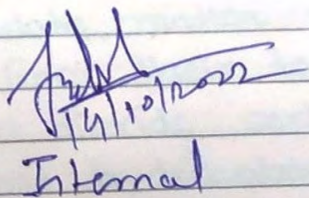 14/10/2022
Internal